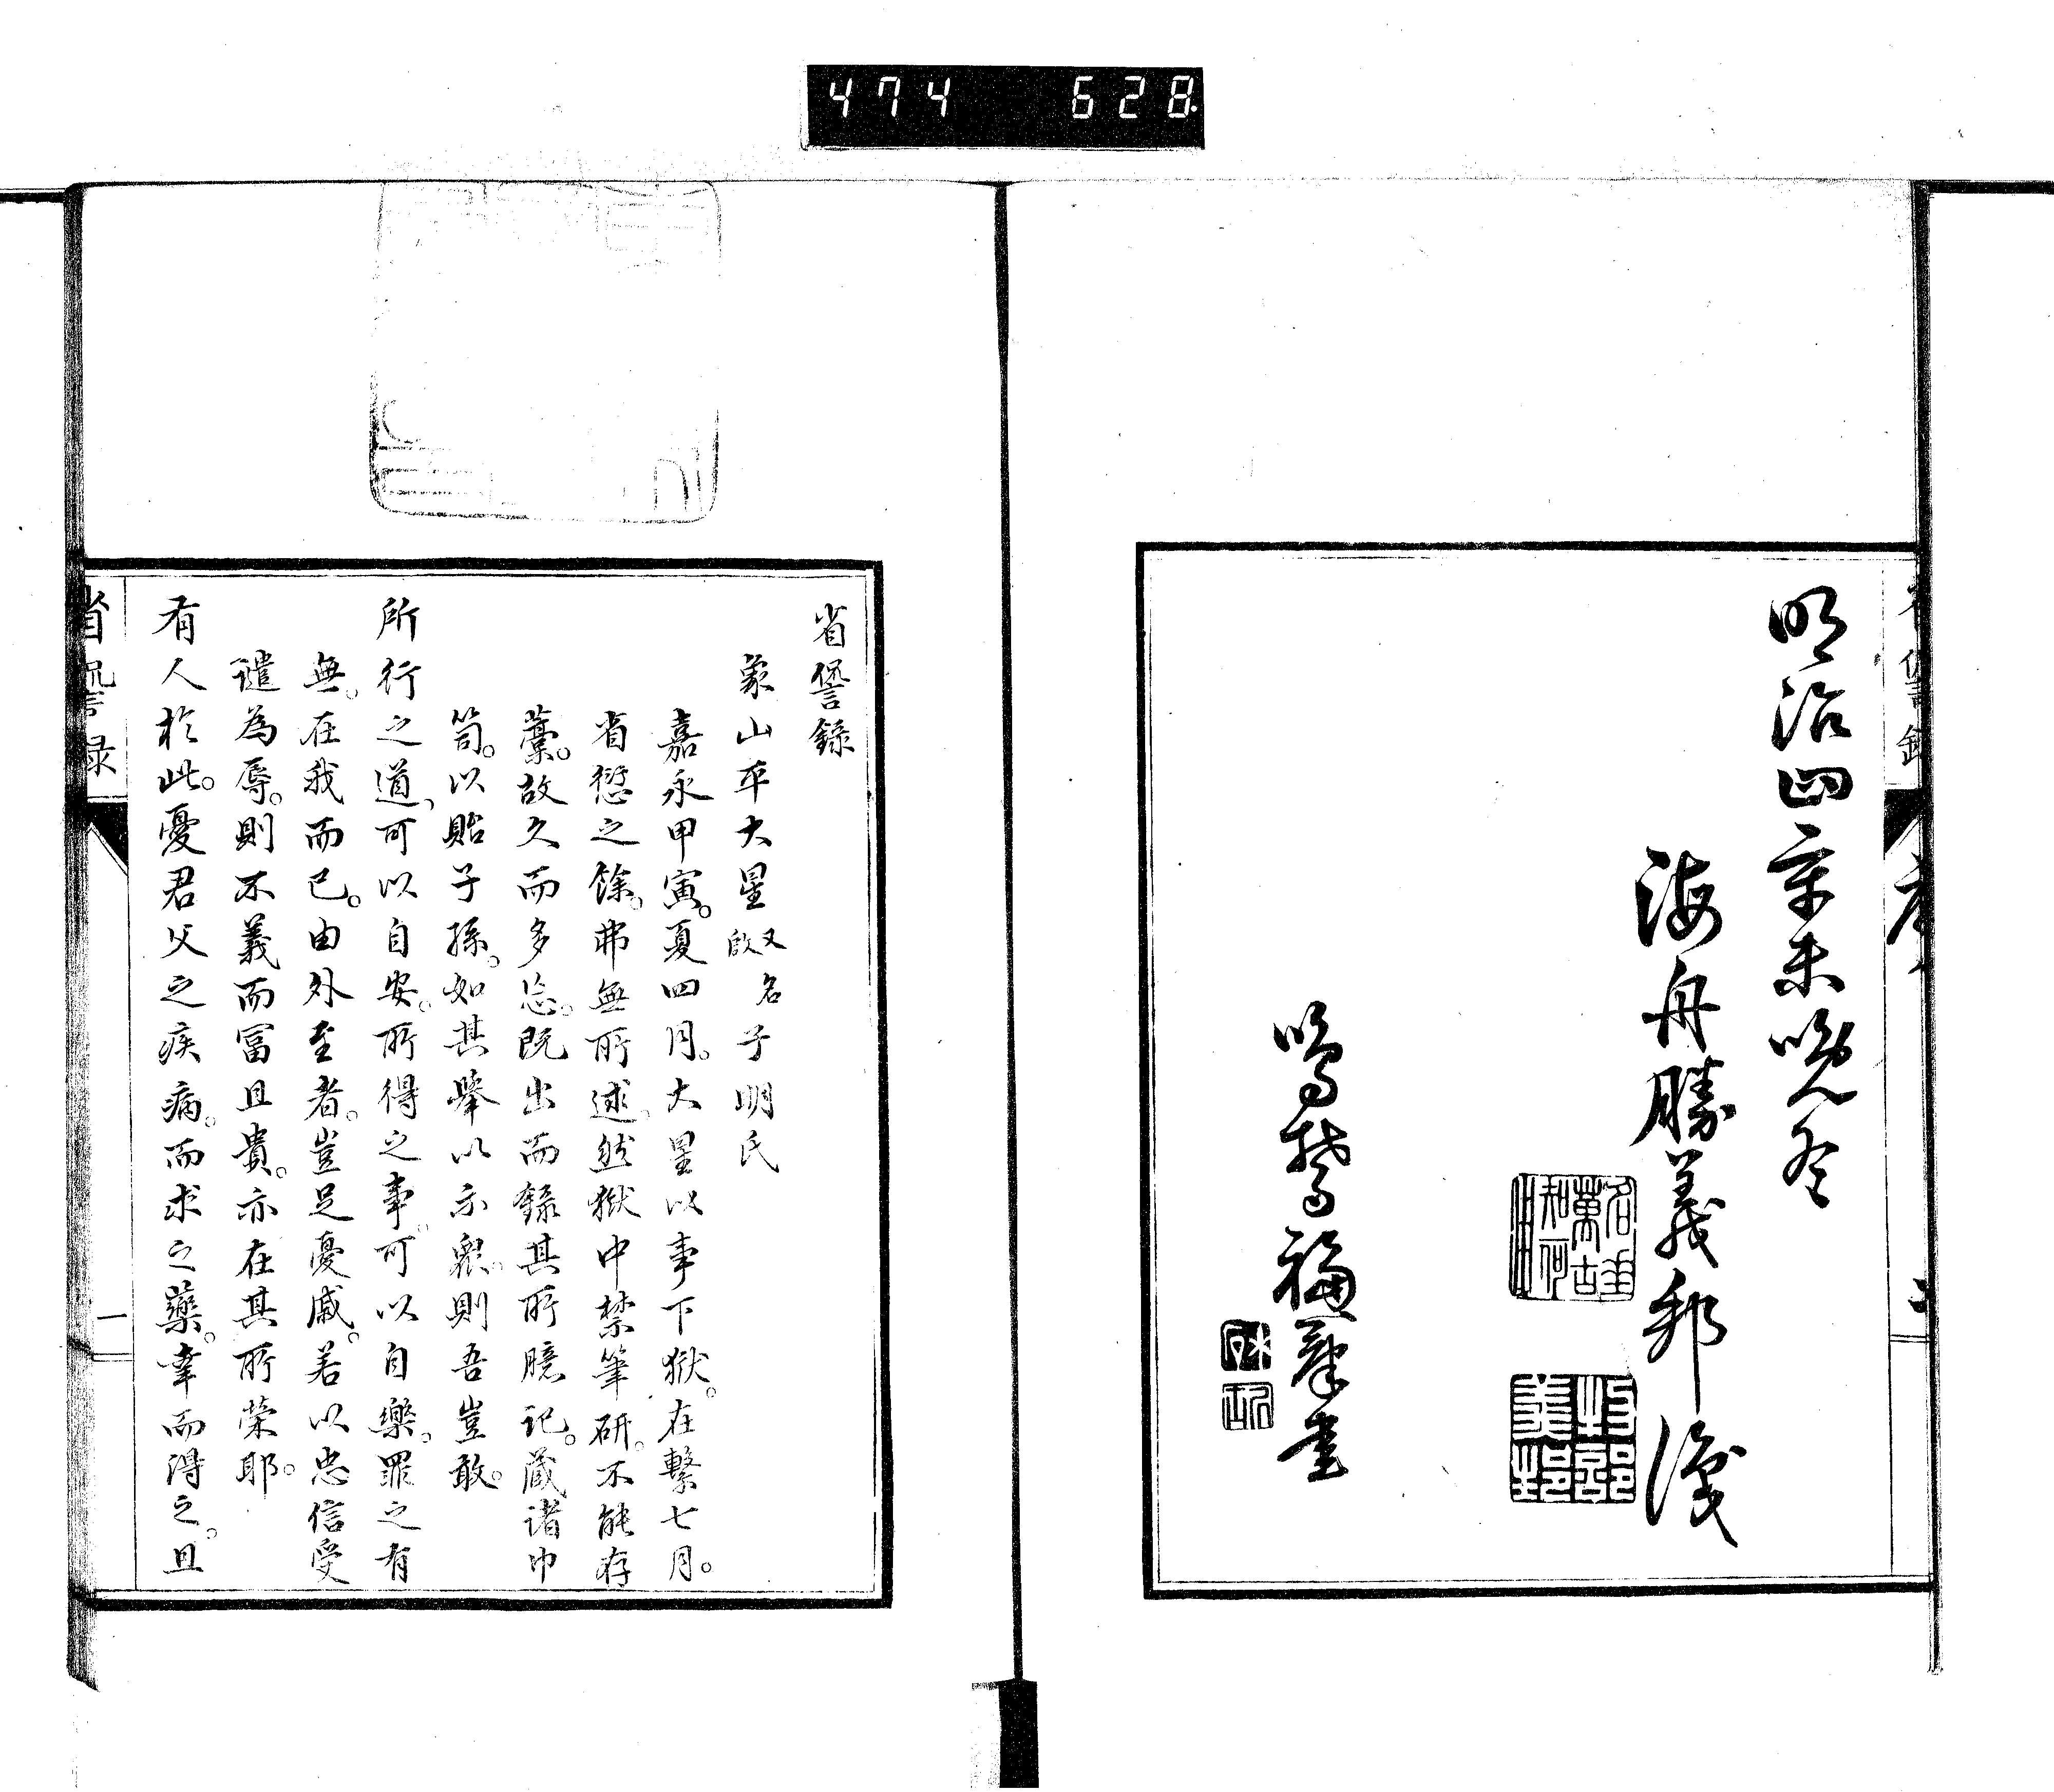 474 628
明治四辛未晩冬
海舟勝義邦識
鳴鶴
書
省諐錄
象山平大星又名啟子明氏
嘉永甲寅。夏四月。大星以事下獄。在繫七月。
省愆之餘。弗無所述。然獄中禁筆研。不能存
藁。故久而多忘。既出而錄其所臆記。藏諸巾
笥。以貽子孫。如其擧以示衆。則吾豈敢。
所行之道、可以自安。所得之事。可以自樂。罪之有
無。在我而已。由外至者。豈足憂戚。若以忠信受
譴為辱。則不義而冨且貴。亦在其所榮耶。
有人於此。憂君父之疾病。而求之藥。幸而得之。且
省諐錄
一